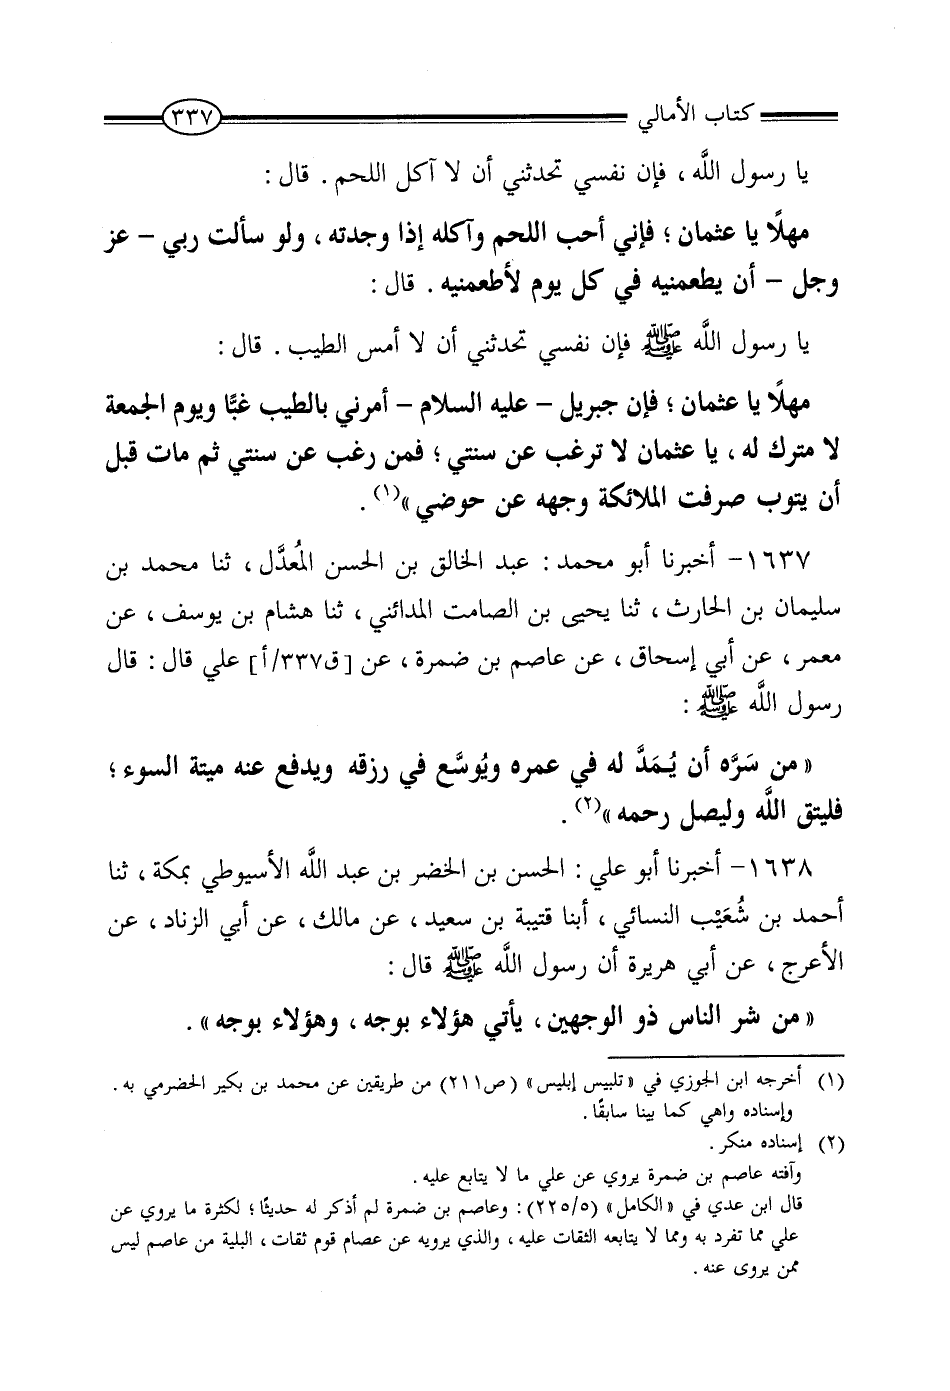 كتاب الأمالي ٣٣٧
يا رسول اللَّه ، فإن نفسي تحدثني أن لا آكل اللحم . قال :
مهلًا يا عثمان ؛ فإني أحب اللحم وآكله إذا وجدته ، ولو سألت ربي - عز
وجل - أن يطعمنيه في كل يوم لأطعمنيه . قال :
يا رسول اللَّه ﷺ فإن نفسي تحدثني أن لا أمس الطيب . قال :
مهلًا يا عثمان ؛ فإن جبريل - عليه السلام - أمرني بالطيب غبًّا ويوم الجمعة
لا مترك له ، يا عثمان لا ترغب عن سنتي ؛ فمن رغب عن سنتي ثم مات قبل
أن يتوب صرفت الملائكة وجهه عن حوضي »(١) .
١٦٣٧- أخبرنا أبو محمد : عبد الخالق بن الحسن المُعدَّل ، ثنا محمد بن
سليمان بن الحارث ، ثنا يحيى بن الصامت المدائني ، ثنا هشام بن يوسف ، عن
معمر ، عن أبي إسحاق ، عن عاصم بن ضمرة ، عن [ق٣٣٧/أ] علي قال : قال
رسول اللَّه ﷺ :
« من سَرَّه أن يُمَدَّ له في عمره ويُوسَّع في رزقه ويدفع عنه ميتة السوء ؛
فليتق اللَّه وليصل رحمه »(٢) .
١٦٣٨- أخبرنا أبو علي : الحسن بن الخضر بن عبد اللَّه الأسيوطي بمكة ، ثنا
أحمد بن شُعَيْب النسائي ، أبنا قتيبة بن سعيد ، عن مالك ، عن أبي الزناد ، عن
الأعرج ، عن أبي هريرة أن رسول اللَّه ﷺ قال :
« من شر الناس ذو الوجهين ، يأتي هؤلاء بوجه ، وهؤلاء بوجه » .
(١) أخرجه ابن الجوزي في « تلبيس إبليس » (ص٢١١) من طريقين عن محمد بن بكير الحضرمي به .
وإسناده واهي كما بينا سابقًا .
(٢) إسناده منكر .
وآفته عاصم بن ضمرة يروي عن علي ما لا يتابع عليه .
قال ابن عدي في « الكامل » (٢٢٥/٥) : وعاصم بن ضمرة لم أذكر له حديثًا ؛ لكثرة ما يروي عن
علي مما تفرد به ومما لا يتابعه الثقات عليه ، والذي يرويه عن عصام قوم ثقات ، البلية من عاصم ليس
ممن يروى عنه .